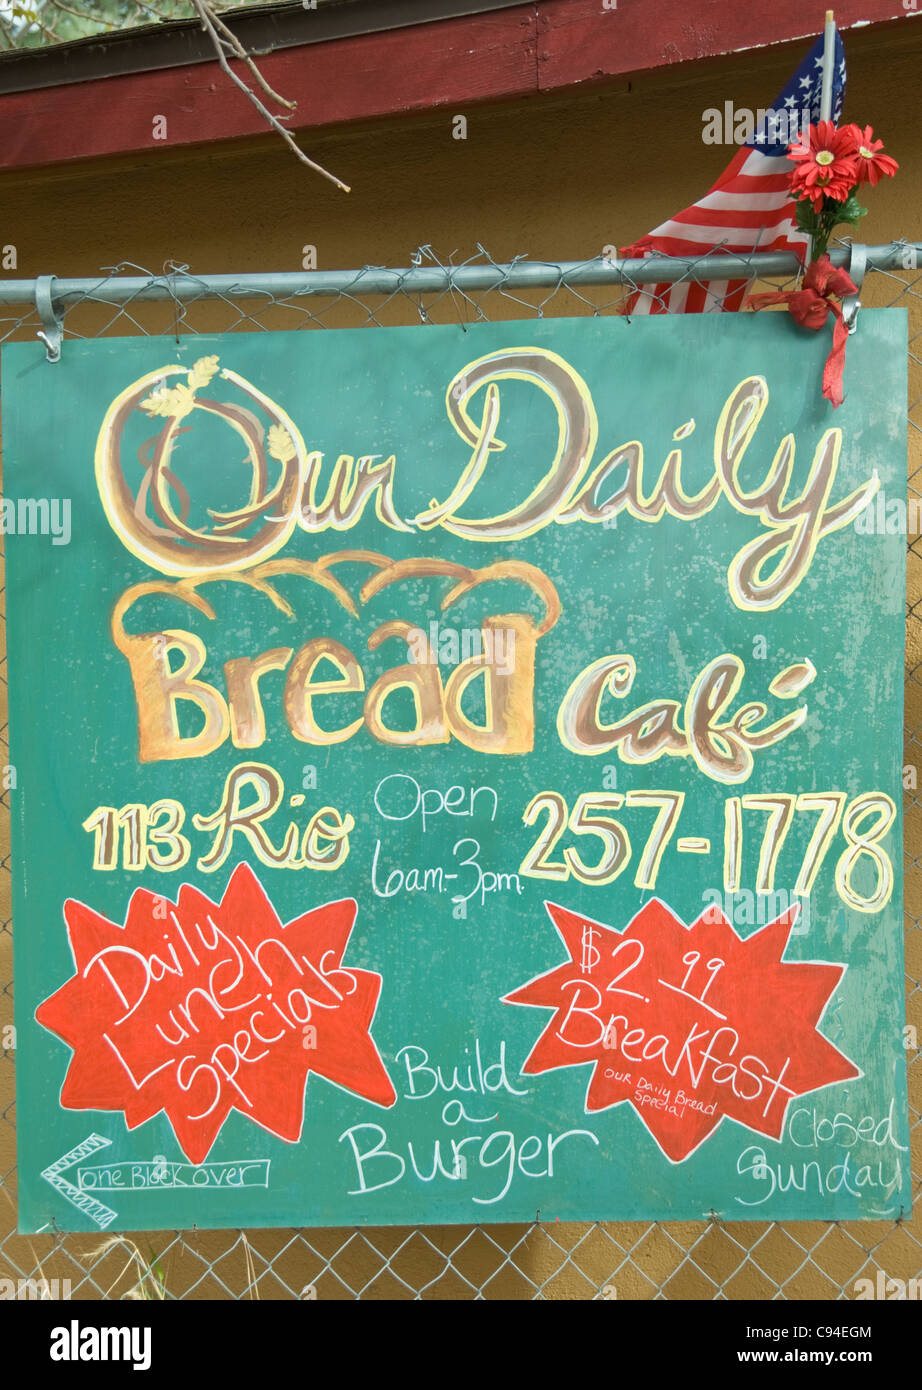 Our Daily
Bread Café
113 Rio
Open
6am-3pm.
257-1778
Daily
Lunch
Specials
$2.99
Breakfast
OUR Daily Bread
Special
Build
a
Burger
Closed
Sunday
one Block over
alamy
Image ID: C94EGM
www.alamy.com